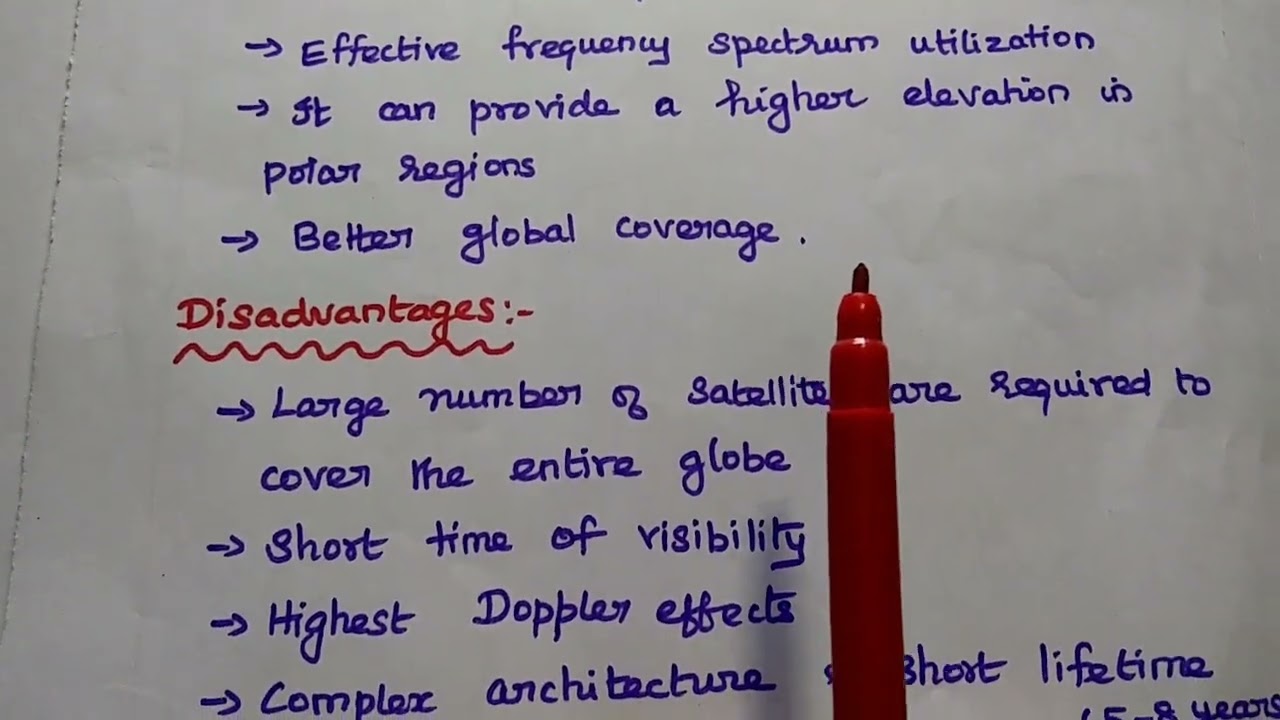 → Effective frequency spectrum utilization
→ It can provide a higher elevation in
polar regions
→ Better global coverage.
Disadvantages:-
→ Large number of satellite are required to
cover the entire globe
→ Short time of visibility
→ Highest Doppler effects
→ Complex architecture short lifetime
(5-8 years